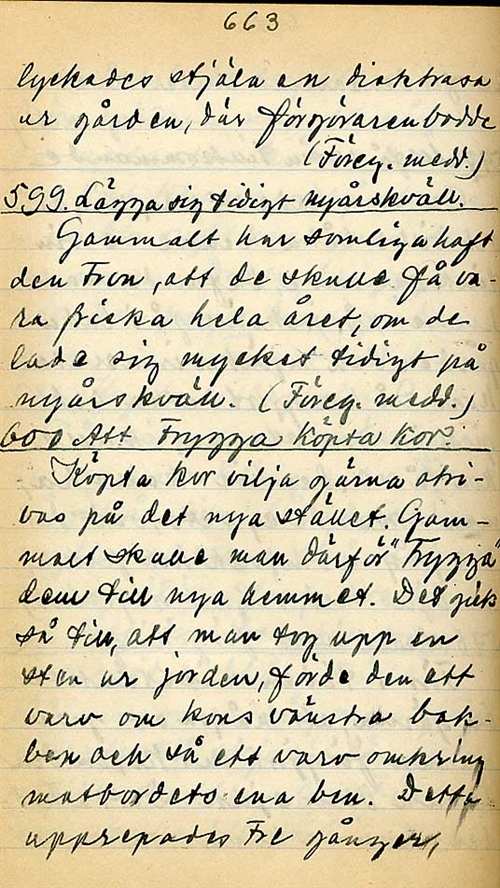 663
lyckades stjäla en disktrasa
ur gården, där förgöraren bodde
(Föreg. medd.)
599. Lägga sig tidigt nyårskväll.
Gammalt har somliga haft
den Tron, att de skulle få va-
ra friska hela året, om de
lade sig mycket tidigt på
nyårskväll. (Föreg. medd.)
600 Att Trygga köpta kor.
Köpta kor vilja gärna otri-
vas på det nya stället. Gam-
malt skulle man därför "Trygga"
dem till nya hemmet. Det gick
så till, att man tog upp en
sten ur jorden, förde den ett
varv om kons vänstra bak-
ben och så ett varv omkring
matbordets ena ben. Detta
upprepades Tre gånger,